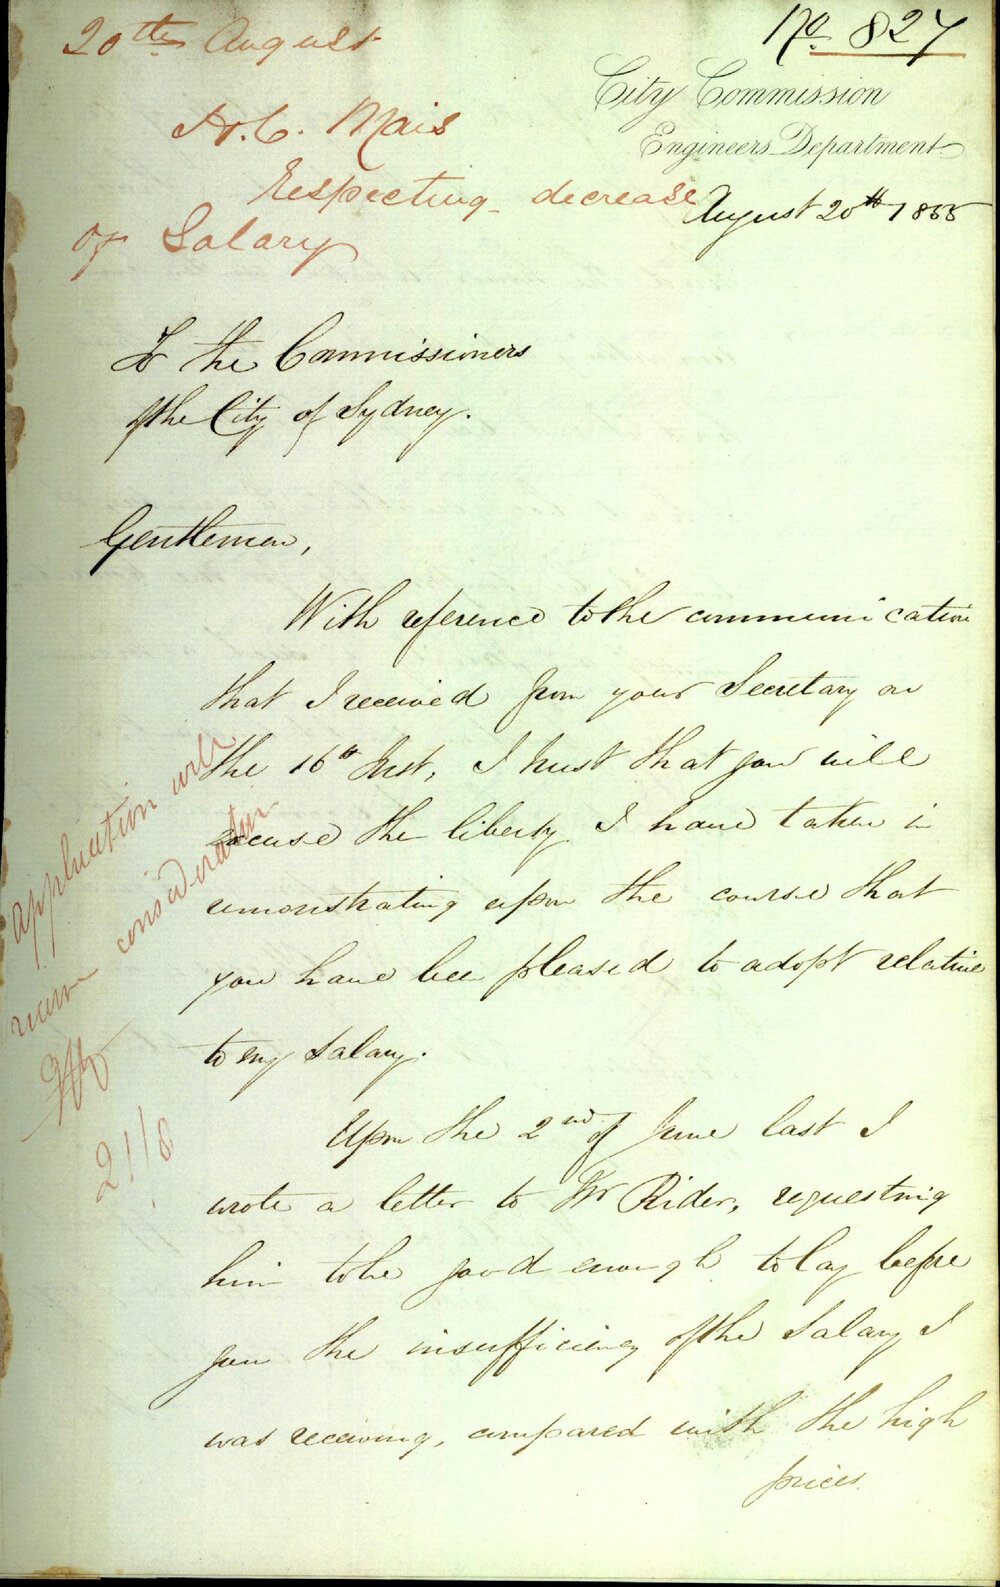 20th August
No. 827
City Commission
Engineers Department
H.C. Mais
Respecting decrease
of Salary
August 20th 1855
To the Commissioners
of the City of Sydney.
Gentlemen,
With reference to the communication
that I received from your Secretary on
the 16th Inst, I trust that you will
excuse the liberty I have taken in
remonstrating upon the course that
you have been pleased to adopt relative
to my Salary.
Upon the 2nd of June last I
wrote a letter to Mr Rider, requesting
him to be good enough to lay before
you the insufficiency of the Salary I
was receiving, compared with the high
prices
Application
consideration
21/8